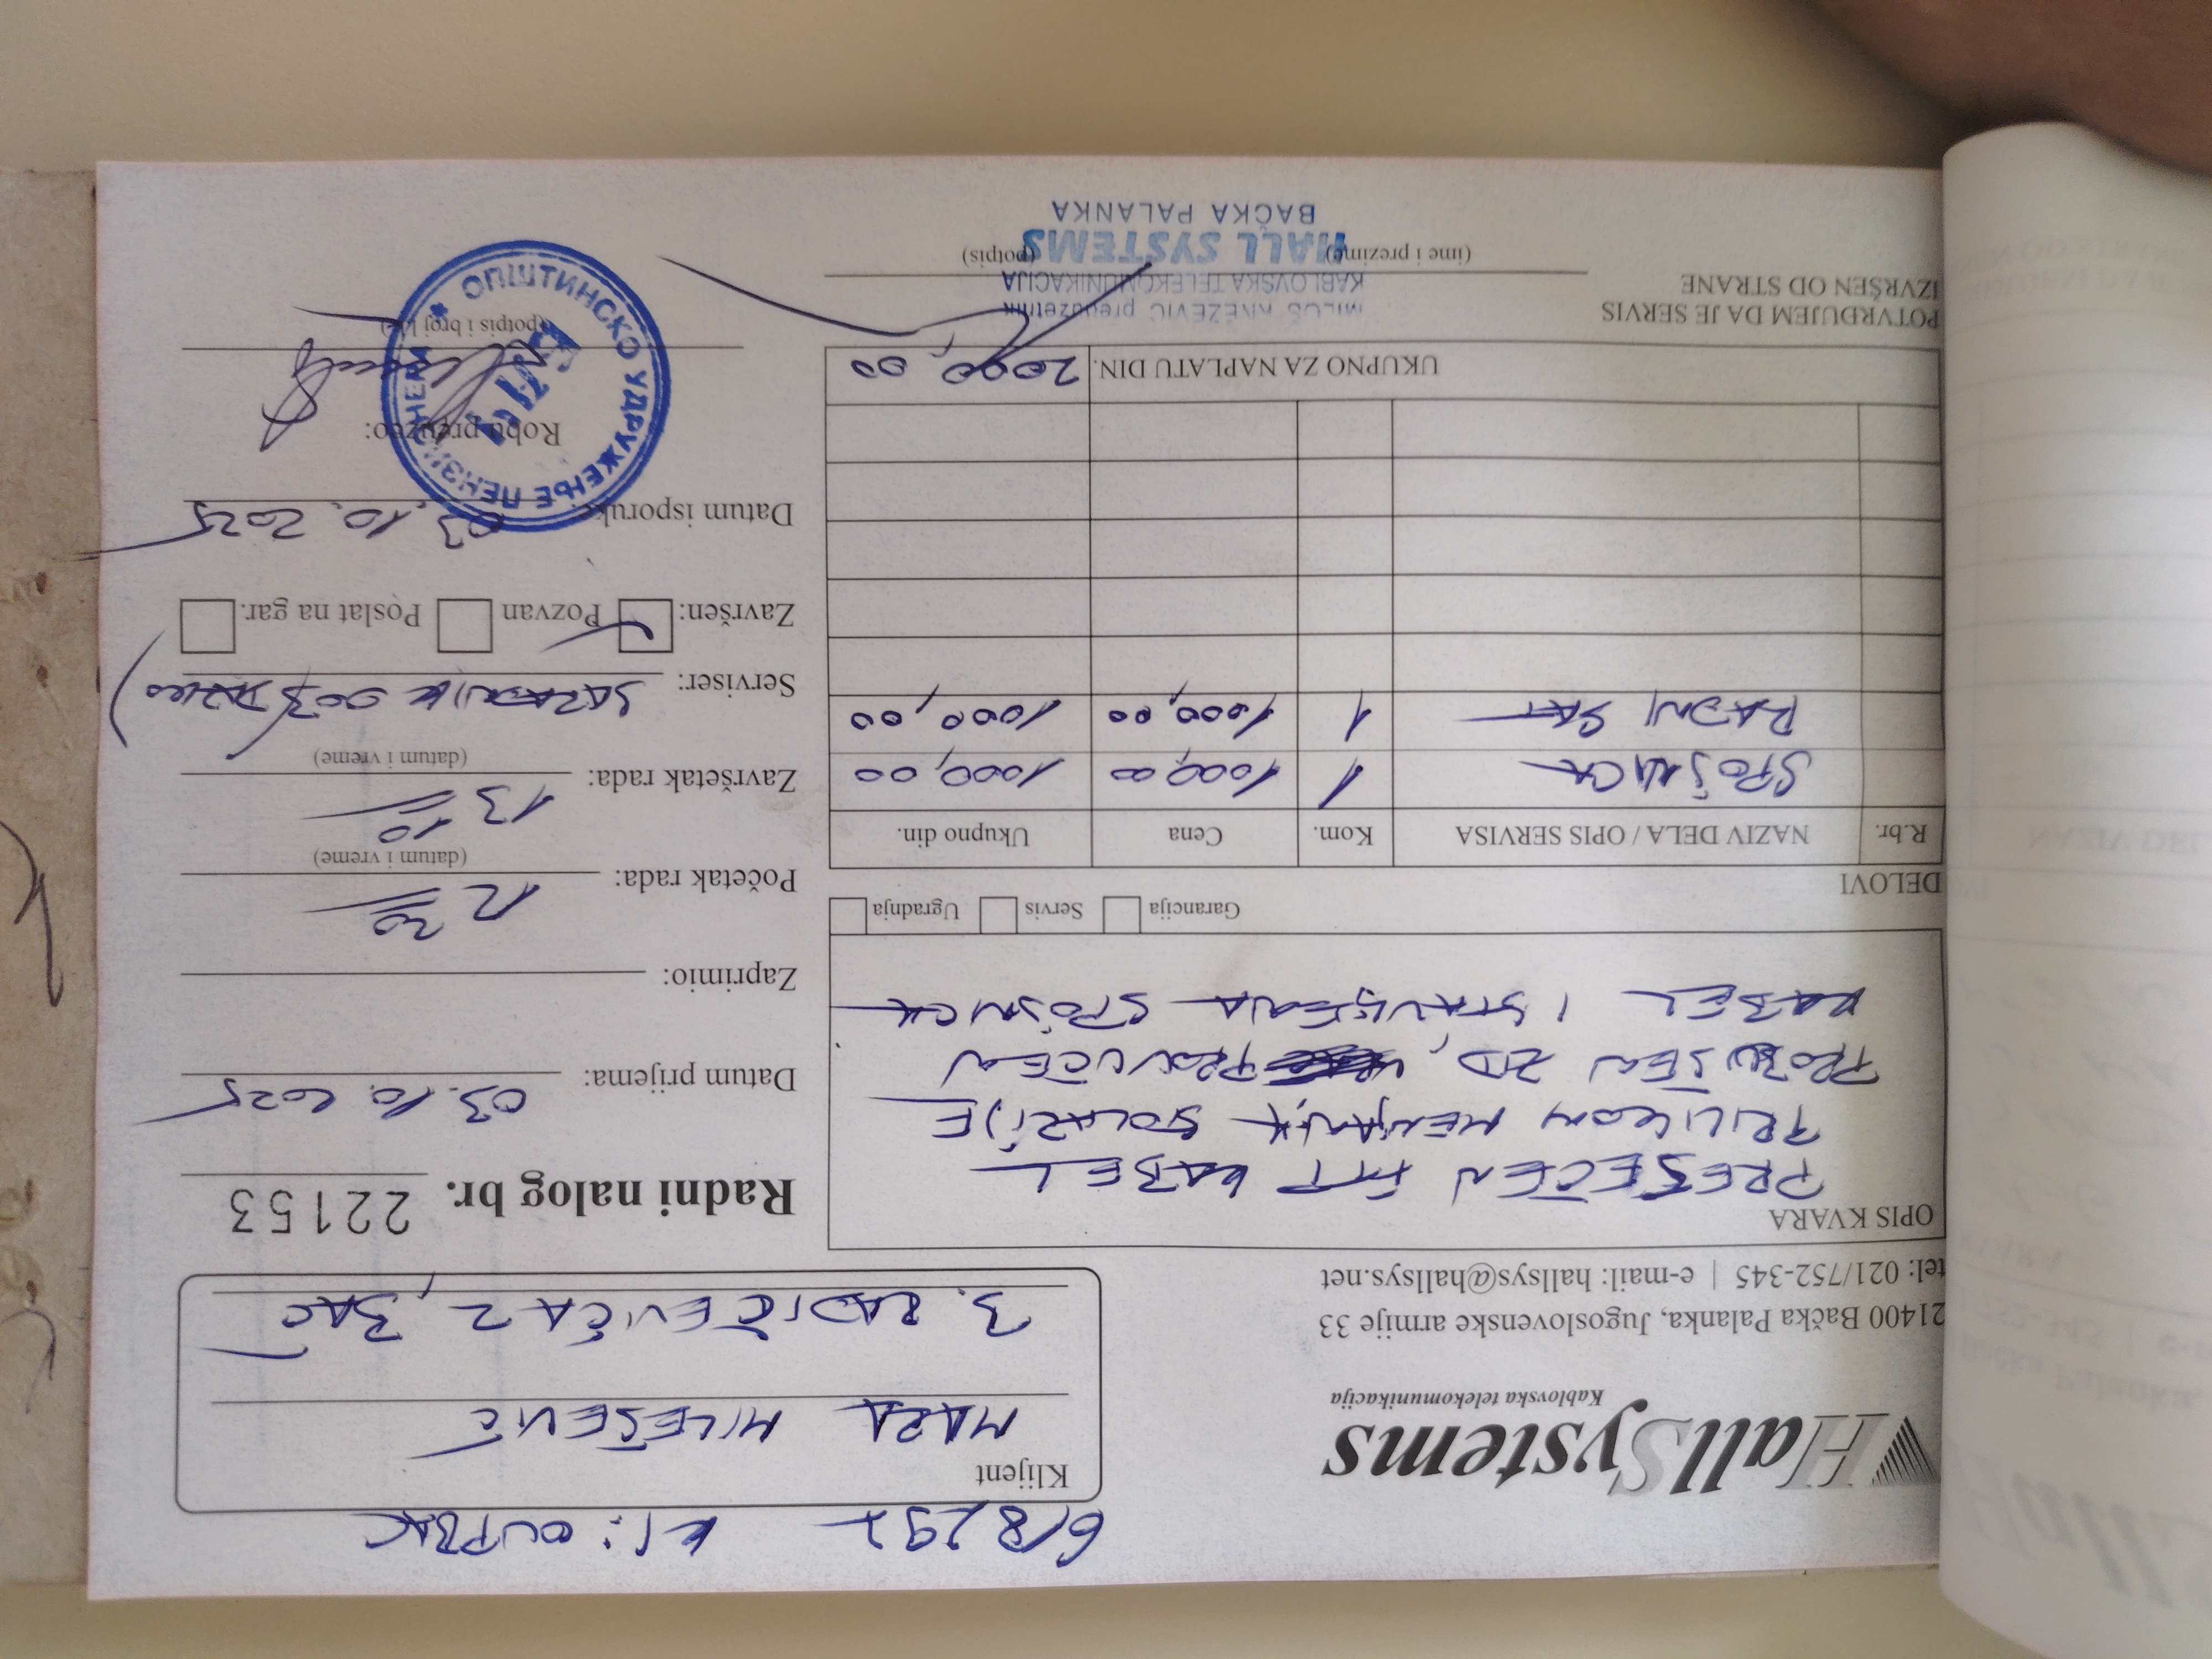 HallSystems
Kablovska telekomunikacija
21400 Bačka Palanka, Jugoslovenske armije 33
tel: 021/752-345 | e-mail: hallsys@hallsys.net
KT: OUPBAC
Klijent
MARA MILEŠEVIĆ
B. RADIČEVIĆA 2, BAČ
Radni nalog br. 22153
OPIS KVARA
PRESEČEN FTP KABEL
PRILIKOM MENJANJA STOLARIJE
PROBUŠEN ZID, PROVUČEN
KABEL I STAVLJENA SPOJNICA
Garancija Servis Ugradnja
DELOVI
R.br. NAZIV DELA / OPIS SERVISA Kom. Cena Ukupno din.
SPOJNICA 1 1000,00 1000,00
RADNI SAT 1 1000,00 1000,00
UKUPNO ZA NAPLATU DIN. 2000,00
POTVRĐUJEM DA JE SERVIS
IZVRŠEN OD STRANE
(ime i prezime) (potpis)
MILOŠ KNEŽEVIĆ preduzetnik
KABLOVSKA TELEKOMUNIKACIJA
HALL SYSTEMS
BAČKA PALANKA
Datum prijema: 03.10.2025
Zaprimio:
Početak rada: 12 30
(datum i vreme)
Završetak rada: 13 10
(datum i vreme)
Serviser: SARADNIK 003
Završen: Pozvan Poslat na gar.
Datum isporuke: 03.10.2025
Robu preuzeo:
(potpis i broj l.k.)
ОПШТИНСКО УДРУЖЕЊЕ ПЕНЗИОНЕРА
БАЧ